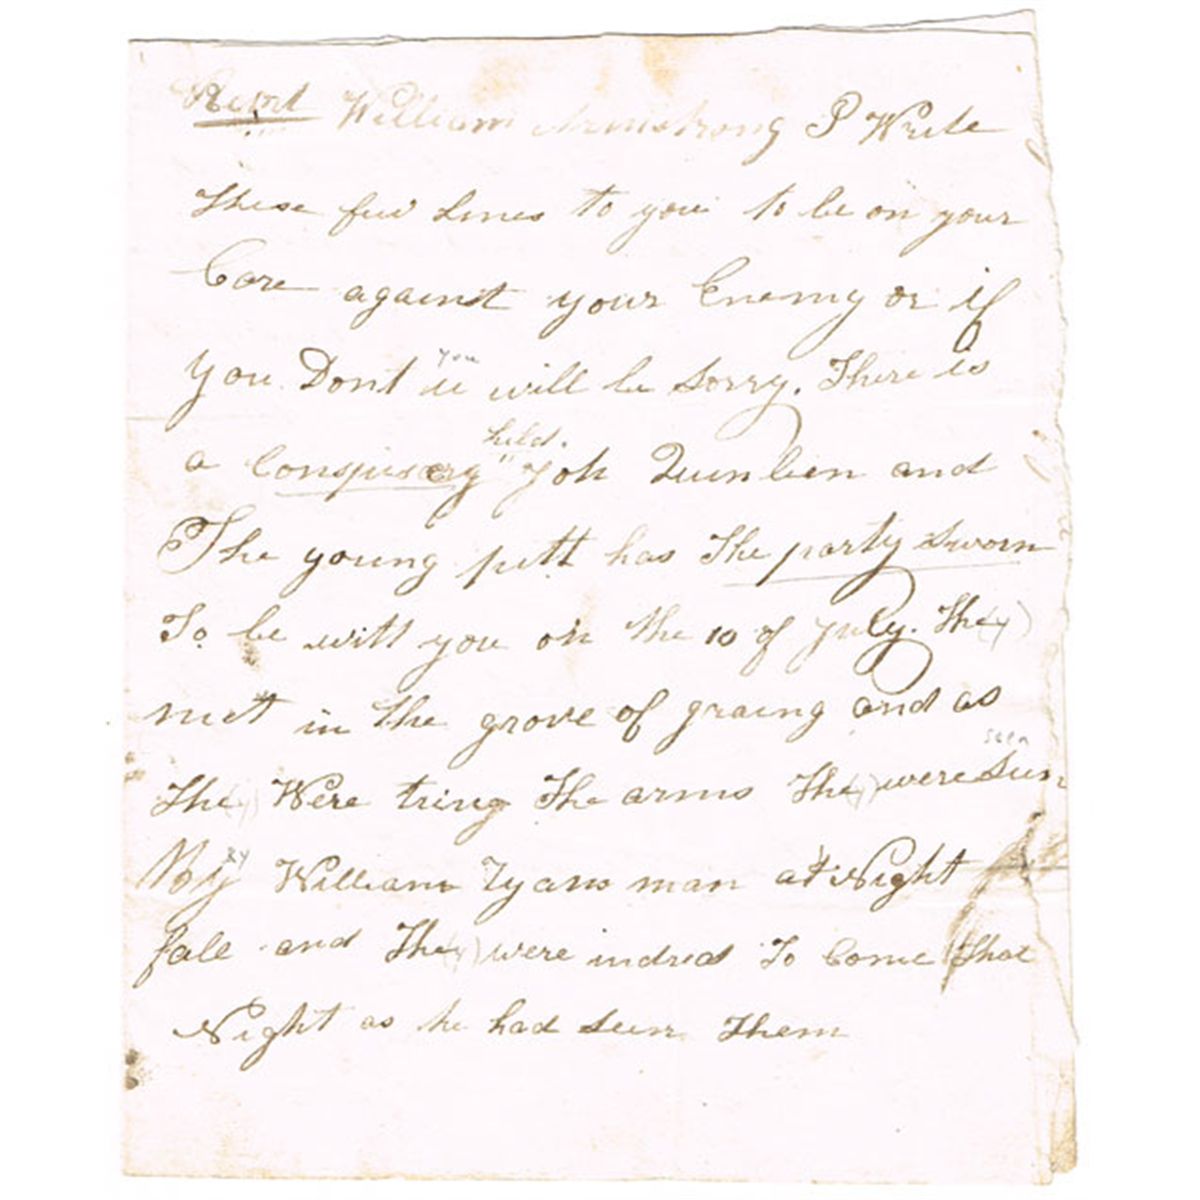 William Armstrong I Write
These few Lines to you to be on your
Care against your Enemy or if
you Dont you will be Sorry. There is
a Conspiserg held. Joh Quinlien and
The young pitt has The party Sworn
To be witt you on the 10 of July. The(y)
met in the grove of graing and as
The(y) Were tring The arms The(y) were Seen seen
By By William Ryans man at Night
fale and The(y) were indred To Come That
Night as he had Seen Them